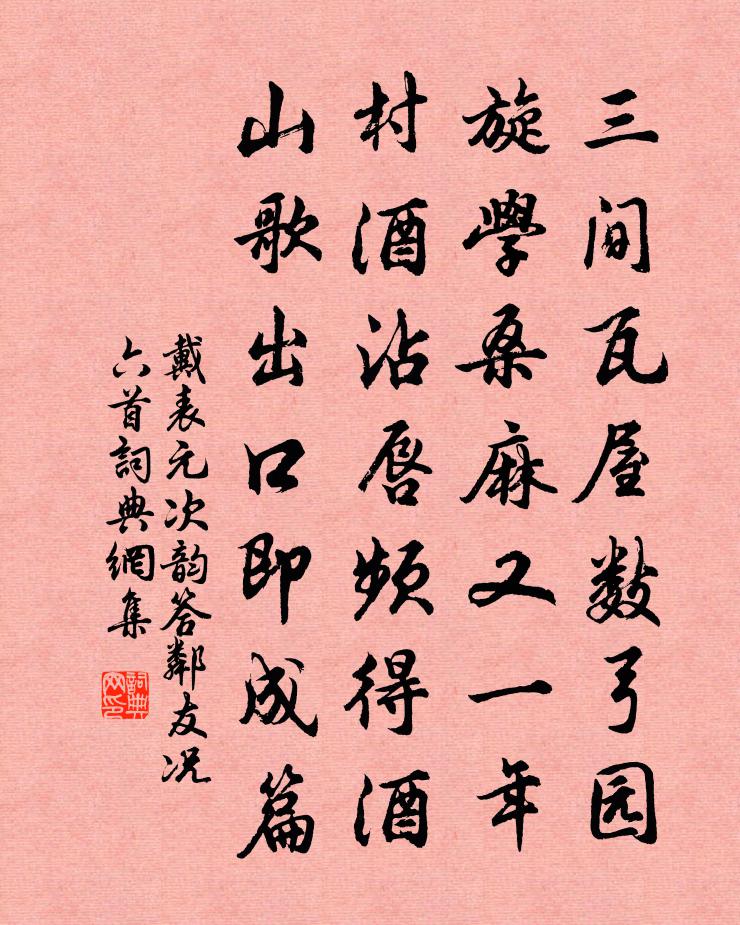 三间瓦屋数弓园
旋學桑麻又一年
村酒沾唇频得酒
山歌出口即成篇
戴表元次韵答鄰友况
六首詞典網集
詞典
网印